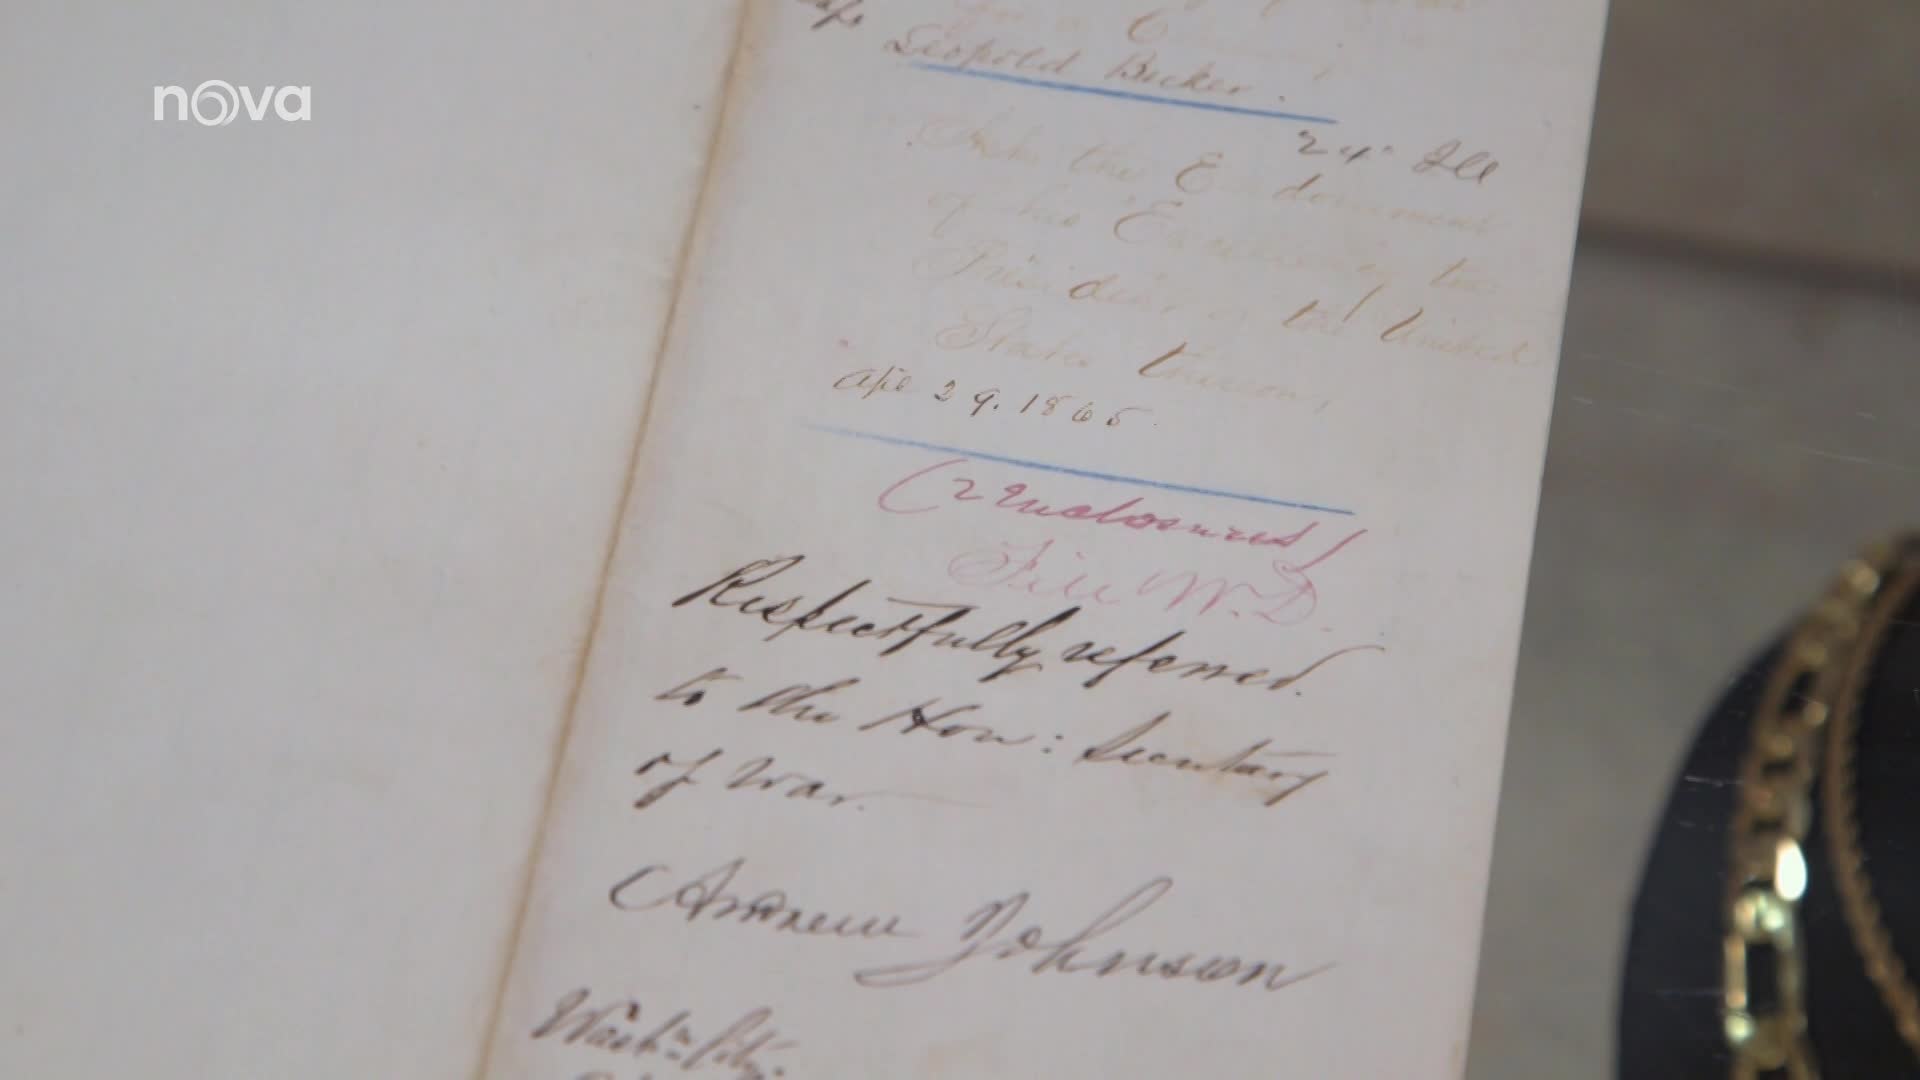 nova
Leopold Becker.
24" Ill
the Endorsement
of his Excellency the
President of the United
States thereon,
Apl 29. 1865.
(2 Enclosures)
File W.D.
Respectfully referred
to the Hon: Secretary
of War.
Andrew Johnson
Wash:n City.